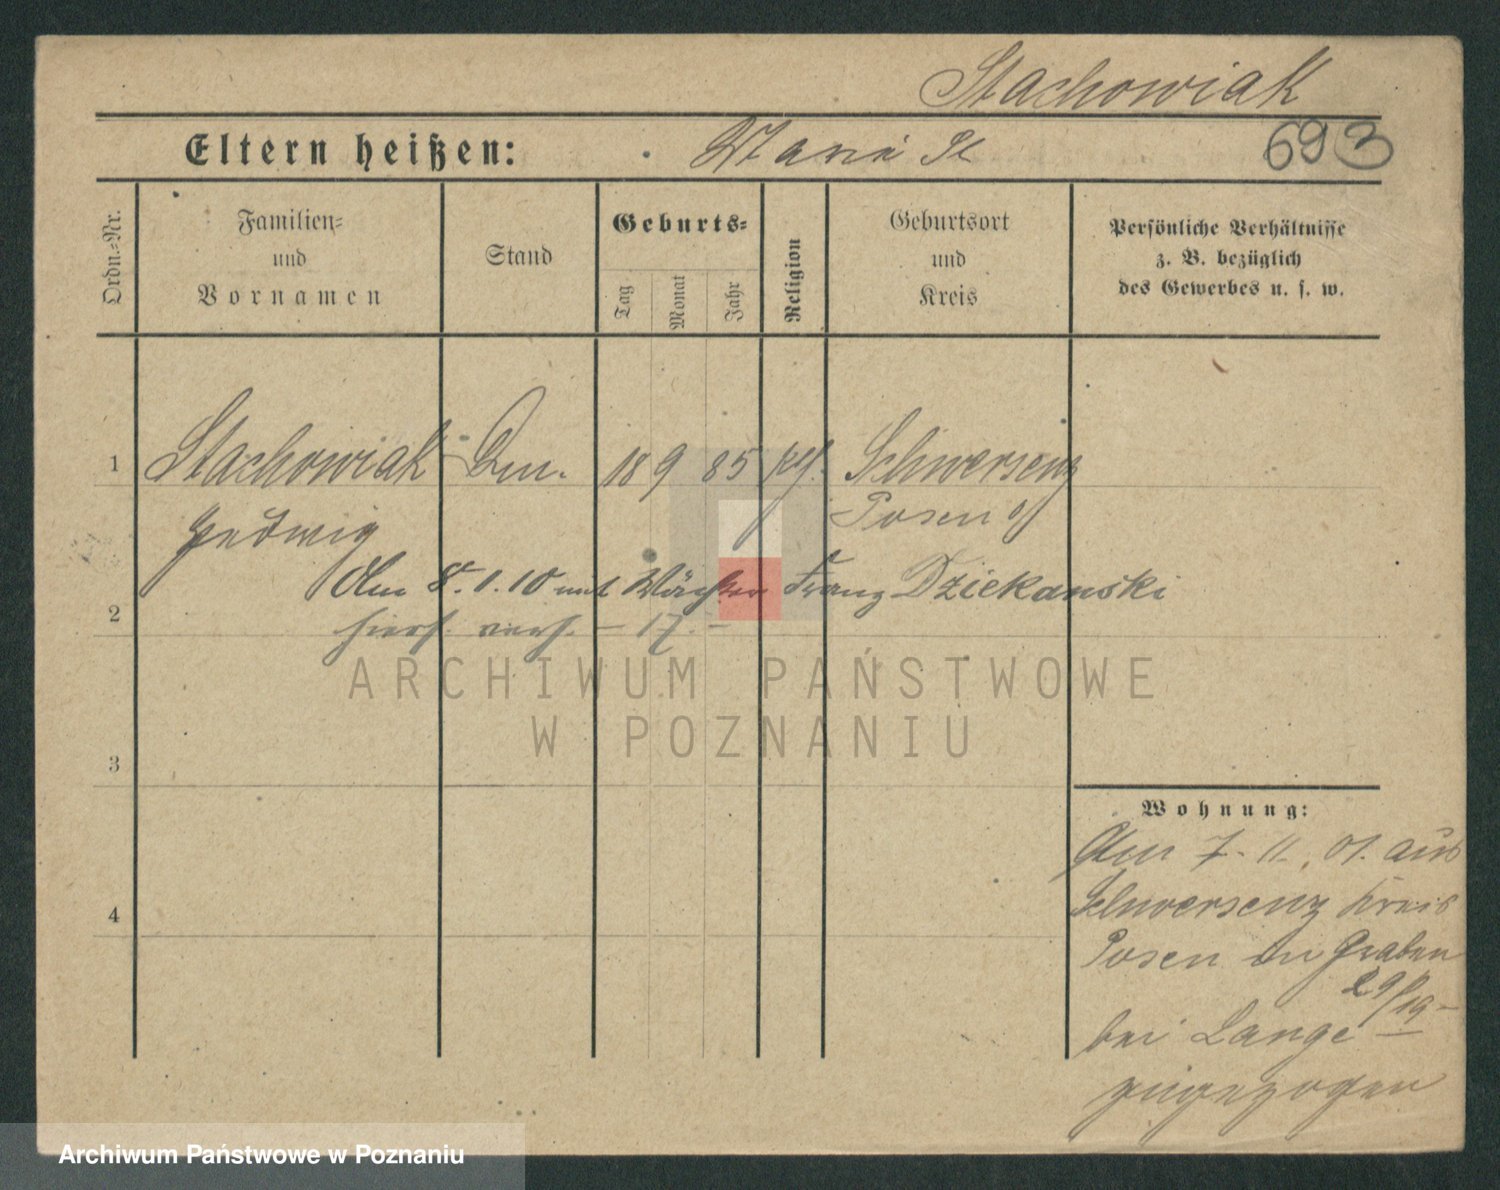 Stachowiak
Eltern heißen: Maria St
693
Ordn.-Nr.
Familien-
und
Vornamen
Stand
Geburts-
Tag
Monat
Jahr
Religion
Geburtsort
und
Kreis
Persönliche Verhältnisse
z. B. bezüglich
des Gewerbes u. s. w.
1 Stachowiak 18 9 85 Schwersenz
Hedwig Posen O
2 Am 8.1.10 mit Wächter Franz Dziekanski
hiers. verh. – 17. –
ARCHIWUM PAŃSTWOWE
W POZNANIU
3
4
Wohnung:
Am 7. 11. 01. aus
Schwersenz Kreis
Posen Graben
29/19
bei Lange
zugezogen
Archiwum Państwowe w Poznaniu